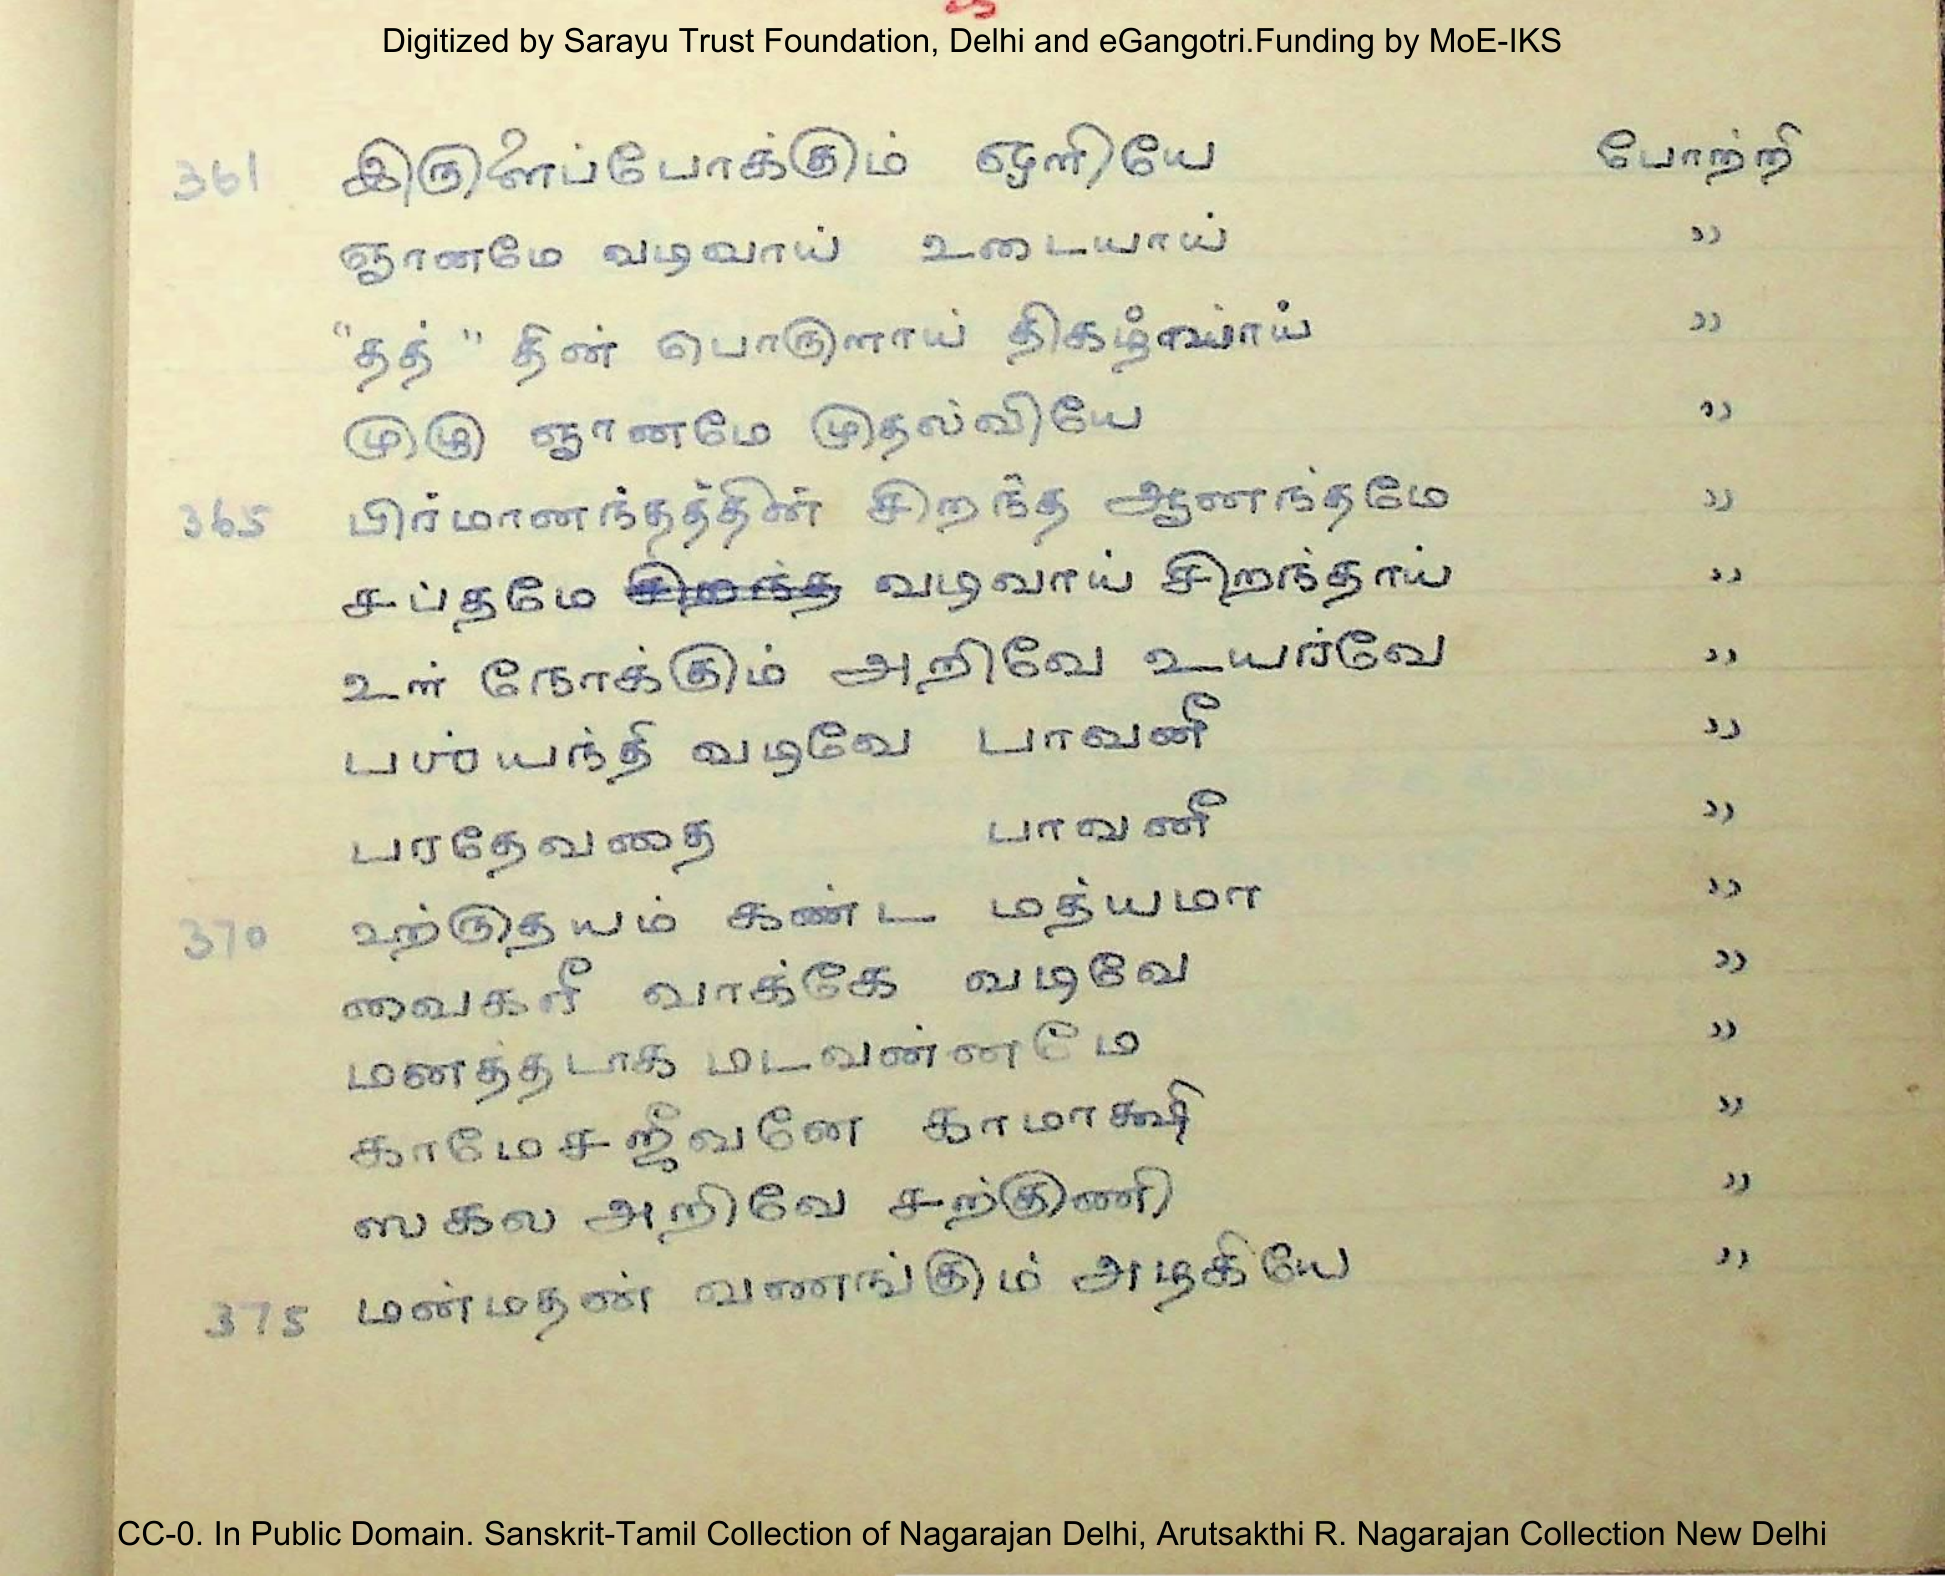 Digitized by Sarayu Trust Foundation, Delhi and eGangotri.Funding by MoE-IKS
361 இருளைப்போக்கும் ஒளியே போற்றி
ஞானமே வடிவாய் உடையாய் ,,
"தத்" தின் பொருளாய் ,,
முழு ஞானமே முதல்வியே ,,
365 பிர்மானந்தத்தின் சிறந்த ஆனந்தமே ,,
சப்தமே சிறந்த வடிவாய் சிறந்தாய் ,,
உள் நோக்கும் அறிவே உயர்வே ,,
பஶ்யந்தி வடிவே பாவனீ ,,
பரதேவதை பாவனீ ,,
370 உற்ருதயம் கண்ட மத்யமா ,,
வைகரீ வாக்கே வடிவே ,,
மனத்தடாக மடவண்னமே ,,
காமேசஜீவனே காமாக்ஷி ,,
ஸகல அறிவே சற்குணி ,,
375 மன்மதண் வணங்கும் அழகியே ,,
CC-0. In Public Domain. Sanskrit-Tamil Collection of Nagarajan Delhi, Arutsakthi R. Nagarajan Collection New Delhi